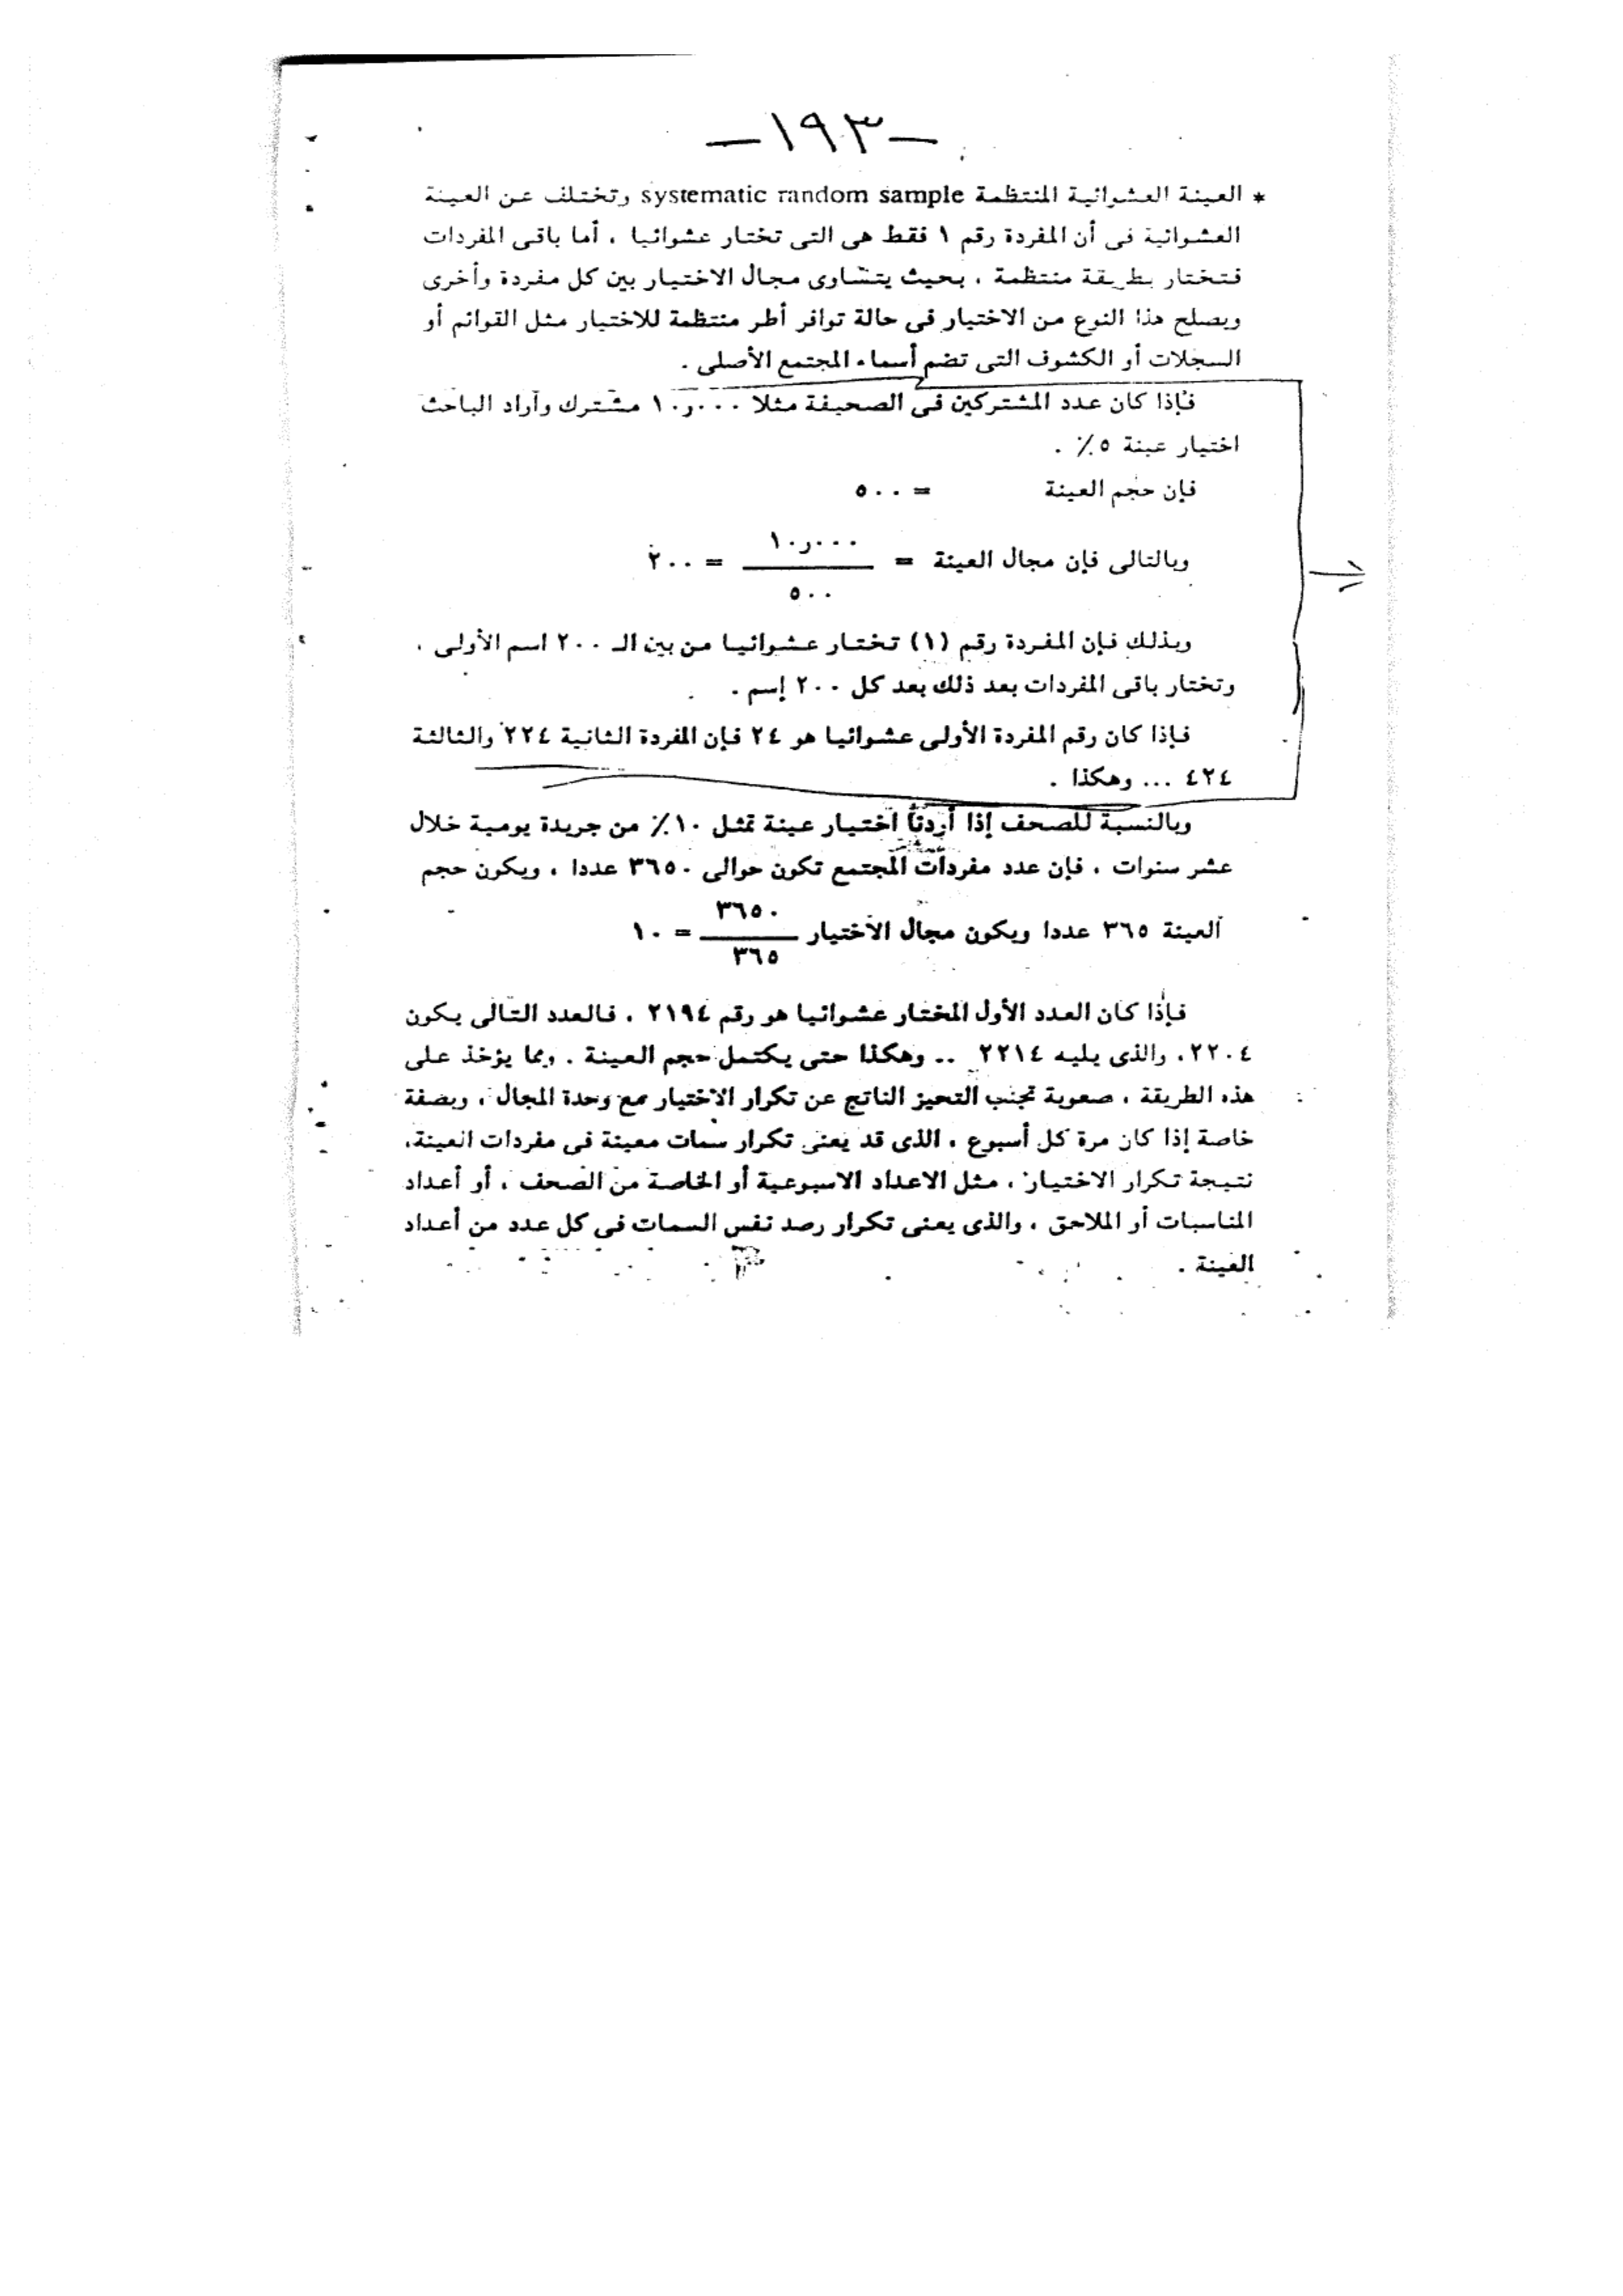 -١٩٣-
* العينة العشوائية المنتظمة systematic random sample وتختلف عن العينة
العشوائية فى أن المفردة رقم ١ فقط هى التى تختار عشوائيا ، أما باقى المفردات
فتختار بطريقة منتظمة ، بحيث يتساوى مجال الاختيار بين كل مفردة وأخرى
ويصلح هذا النوع من الاختيار فى حالة توافر أطر منتظمة للاختيار مثل القوائم أو
السجلات أو الكشوف التى تضم أسماء المجتمع الأصلى .
فإذا كان عدد المشتركين فى الصحيفة مثلا ١٠ر٠٠٠ مشترك وأراد الباحث
اختيار عينة ٥٪ .
فإن حجم العينة = ٥٠٠
١٠ر٠٠٠
وبالتالى فإن مجال العينة = ــــــ = ٢٠٠
٥٠٠
وبذلك فإن المفردة رقم (١) تختار عشوائيا من بين الـ ٢٠٠ اسم الأولى ،
وتختار باقى المفردات بعد ذلك بعد كل ٢٠٠ إسم .
فإذا كان رقم المفردة الأولى عشوائيا هو ٢٤ فإن المفردة الثانية ٢٢٤ والثالثة
٤٢٤ ... وهكذا .
وبالنسبة للصحف إذا أردنا اختيار عينة تمثل ١٠٪ من جريدة يومية خلال
عشر سنوات ، فإن عدد مفردات المجتمع تكون حوالى ٣٦٥٠ عددا ، ويكون حجم
٣٦٥٠
العينة ٣٦٥ عددا ويكون مجال الاختيار ــــــ = ١٠
٣٦٥
فإذا كان العدد الأول المختار عشوائيا هو رقم ٢١٩٤ ، فالعدد التالى يكون
٢٢٠٤، والذى يليه ٢٢١٤ .. وهكذا حتى يكتمل حجم العينة . ومما يؤخذ على
هذه الطريقة ، صعوبة تجنب التحيز الناتج عن تكرار الاختيار مع وحدة المجال ، وبصفة
خاصة إذا كان مرة كل أسبوع ، الذى قد يعنى تكرار سمات معينة فى مفردات العينة،
نتيجة تكرار الاختيار ، مثل الاعداد الاسبوعية أو الخاصة من الصحف ، أو أعداد
المناسبات أو الملاحق ، والذى يعنى تكرار رصد نفس السمات فى كل عدد من أعداد
العينة .